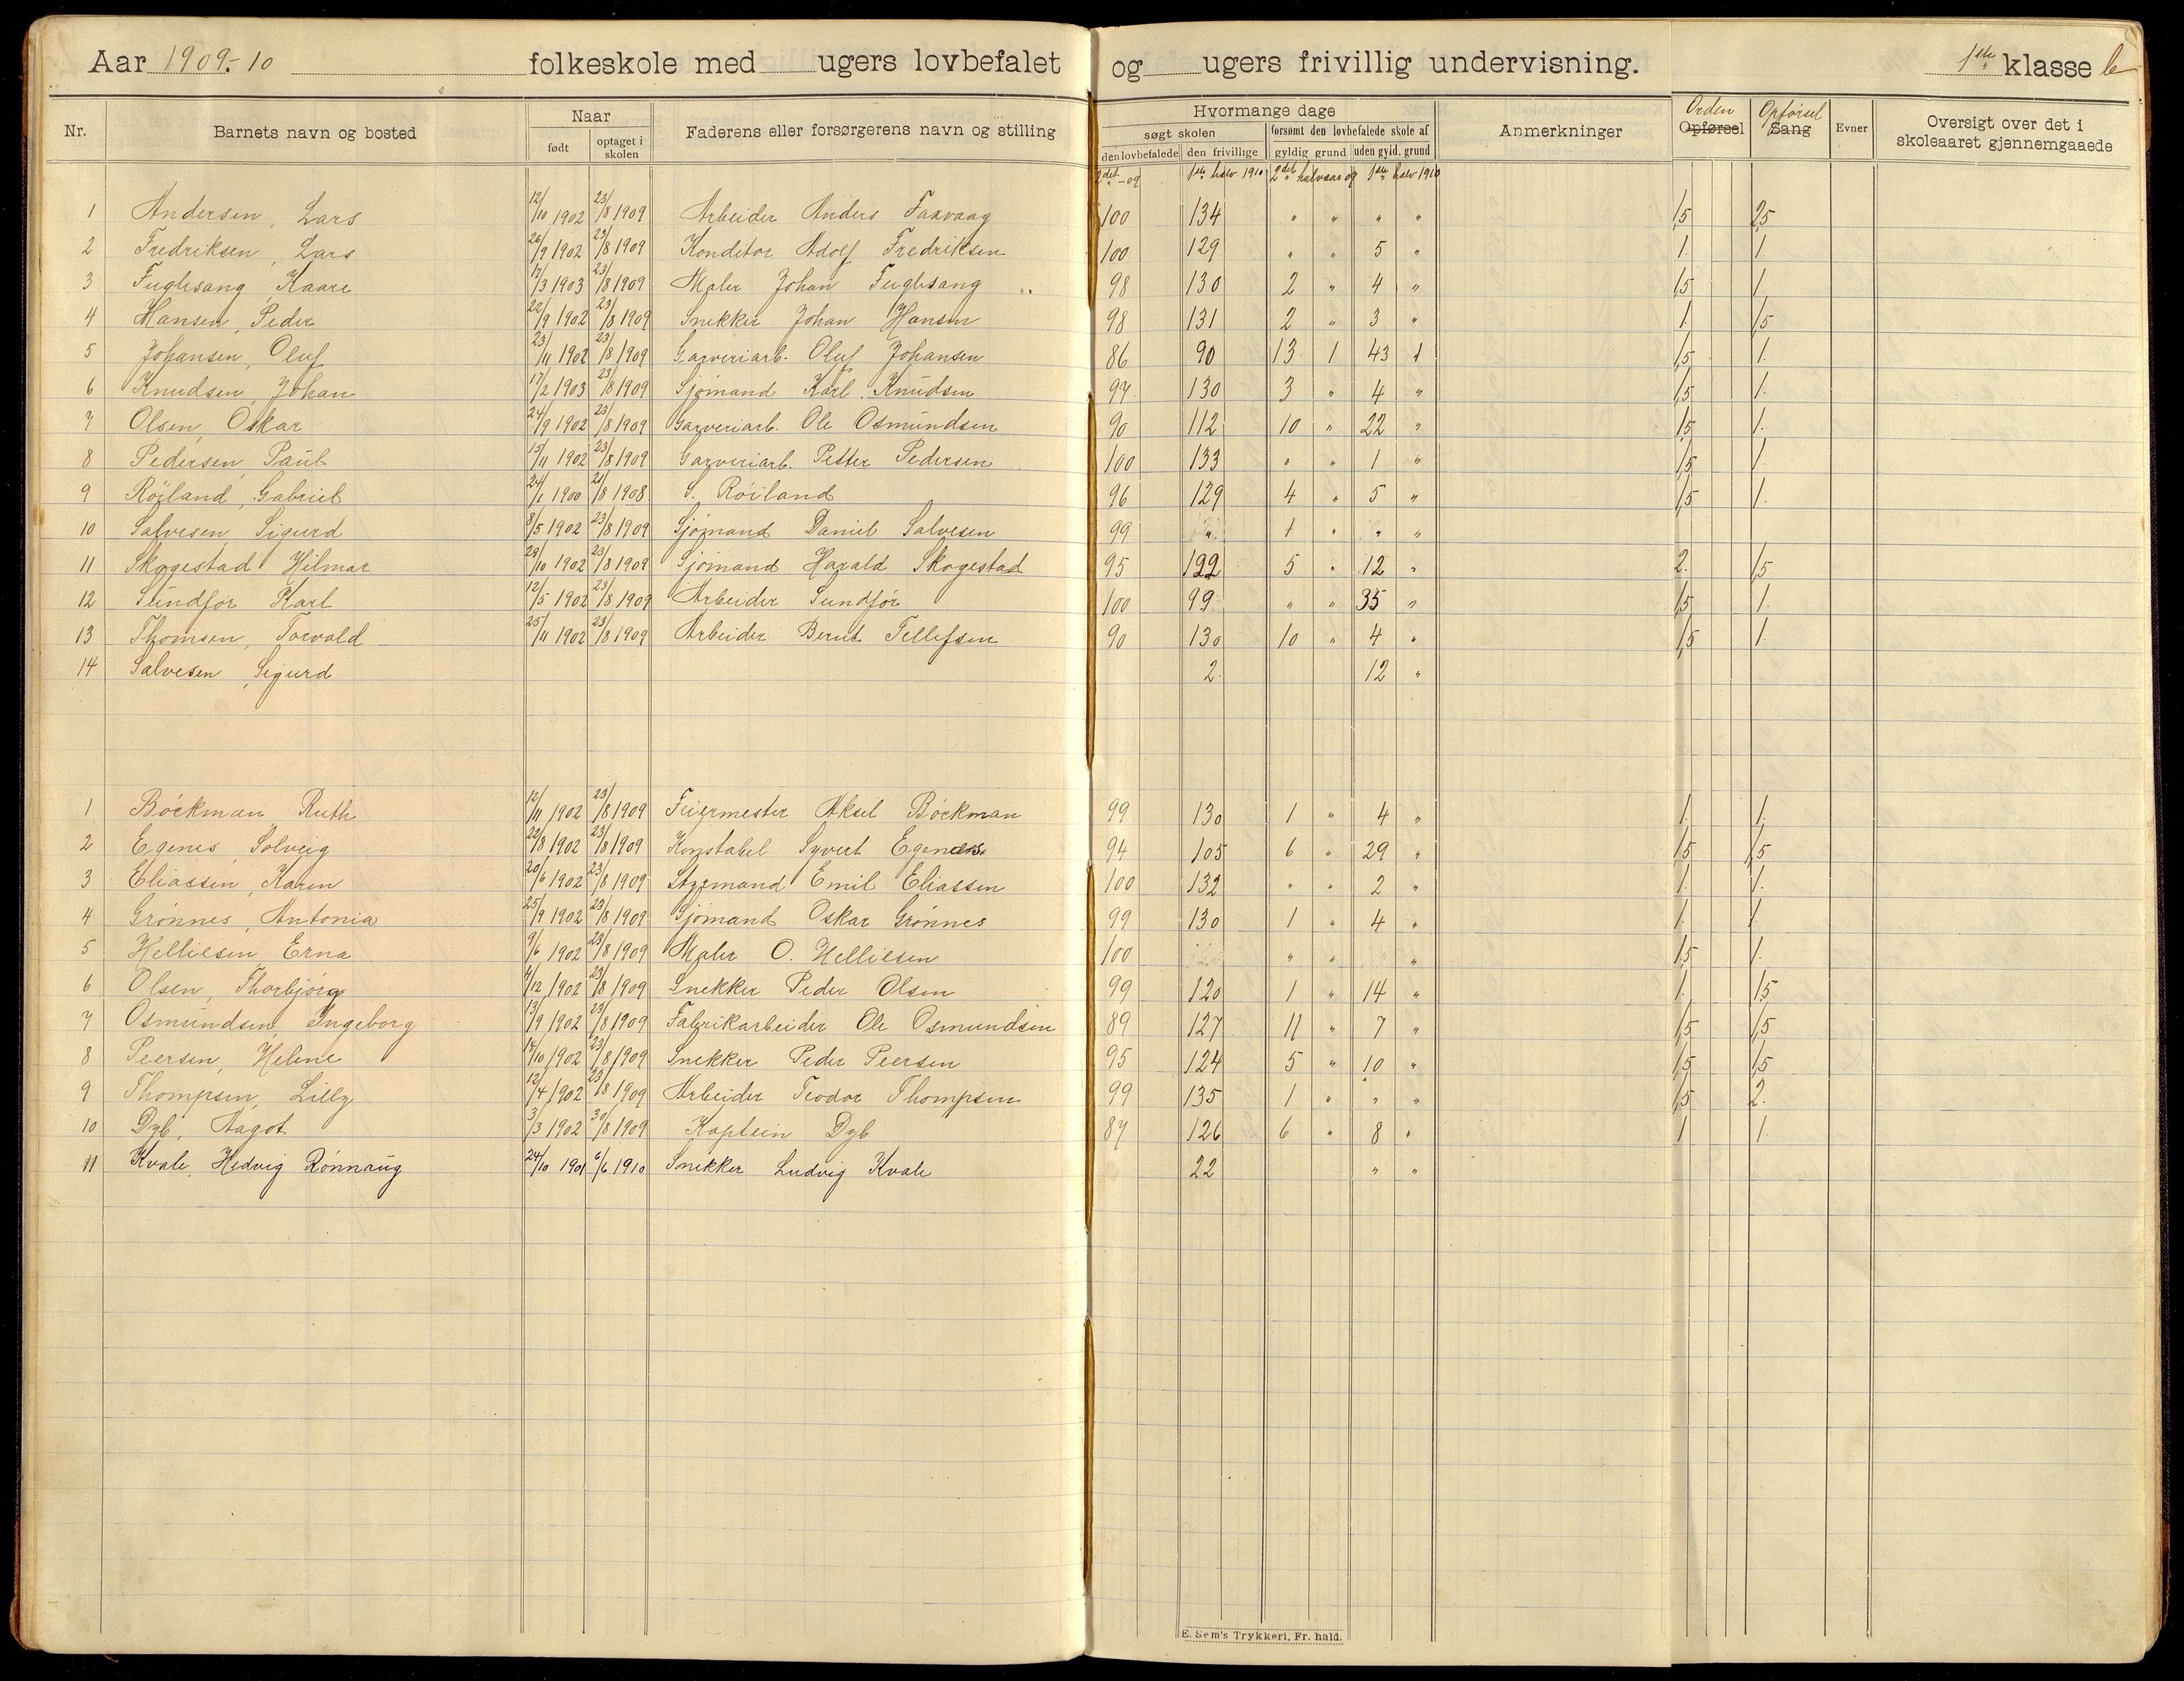 Aar 1909.-10 folkeskole med ugers lovbefalet og ugers frivillig undervisning. 1ste klasse b
Nr. Barnets navn og bosted Naar født optaget i skolen Faderens eller forsørgerens navn og stilling Hvormange dage søgt skolen den lovbefalede den frivillige forsømt den lovbefalede skole af gyldig grund uden gyld. grund Anmerkninger Orden Opførsel Opførsel Sang Evner Oversigt over det i skoleaaret gjennemgaaede
2det -09 1ste halv 1910 2det halvaar og 1ste halv 1910
1 Andersen, Lars 12/10 1902 23/8 1909 Arbeider Anders Faxvaag 100 134 " " " " 1,5 2,5
2 Fredriksen, Lars 26/9 1902 23/8 1909 Konditor Adolf Fredriksen 100 129 " " 5 " 1. 1.
3 Fuglesang, Kaare 17/3 1903 23/8 1909 Maler Johan Fuglesang 98 130 2 " 4 " 1,5 1
4 Hansen, Peder 22/9 1902 23/8 1909 Snekker Johan Hansen 98 131 2 " 3 " 1. 1,5
5 Johansen, Oluf 23/11 1902 23/8 1909 Garveriarb. Oluf Johansen 86 90 13 1 43 1 1,5 1.
6 Knudsen, Johan 17/2 1903 23/8 1909 Sjømand Karl Knudsen 97 130 3 " 4 " 1,5 1.
7 Olsen, Oskar 24/9 1902 23/8 1909 Garveriarb. Ole Osmundsen 90 112 10 " 22 " 1,5 1.
8 Pedersen, Paul 15/11 1902 23/8 1909 Garveriarb. Petter Pedersen 100 133 " " 1 " 1,5 1.
9 Röiland, Gabriel 24/1 1900 21/8 1908 S. Röiland 96 129 4 " 5 " 1,5 1.
10 Salvesen, Sigurd 8/5 1902 23/8 1909 Sjømand Daniel Salvesen 99 " 1 " " "
11 Skogestad Hilmar 28/10 1902 23/8 1909 Sjømand Harald Skogestad 95 122 5 " 12 " 2. 1,5
12 Sundför Karl 12/5 1902 23/8 1909 Arbeider Sundför 100 99 " " 35 " 1,5 1.
13 Thomsen, Torvald 25/11 1902 23/8 1909 Arbeider Bernt Tellefsen 90 130 10 " 4 " 1,5 1.
14 Salvesen, Sigurd 2 12 "
1 Böckman, Ruth 12/11 1902 23/8 1909 Feiermester Aksel Böckman 99 130 1 " 4 " 1. 1.
2 Egenes, Solveig 22/8 1902 23/8 1909 Konstabel Syvert Egenes 94 105 6 " 29 " 1,5 1,5
3 Eliassen, Karen 20/6 1902 23/8 1909 Styrmand Emil Eliassen 100 132 " " 2 " 1. 1.
4 Grönnes, Antonia 25/9 1902 23/8 1909 Sjømand Oskar Grönnes 99 130 1 " 4 " 1. 1
5 Helliesen, Erna 9/6 1902 23/8 1909 Maler O. Helliesen 100 " " " 1,5 1.
6 Olsen, Thorbjörg 4/12 1902 23/8 1909 Snekker Peder Olsen 99 120 1 " 14 " 1. 1,5
7 Osmundsen, Ingeborg 13/9 1902 23/8 1909 Fabrikarbeider Ole Osmundsen 89 127 11 " 7 " 1,5 1,5
8 Peersen, Helene 14/10 1902 23/8 1909 Snekker Peder Peersen 95 124 5 " 10 " 1,5 1,5
9 Thompsen, Lilly 12/4 1902 23/8 1909 Arbeider Teodor Thompsen 99 135 1 " " " 1,5 2.
10 Dyb, Aagot 3/3 1902 30/8 1909 Kaptein Dyb 87 126 6 " 8 " 1 1.
11 Kvale, Hedvig Rönnaug 24/10 1901 6/6 1910 Snekker Ludvig Kvale 22 " "
E. Sem's Trykkeri, Fr. hald.